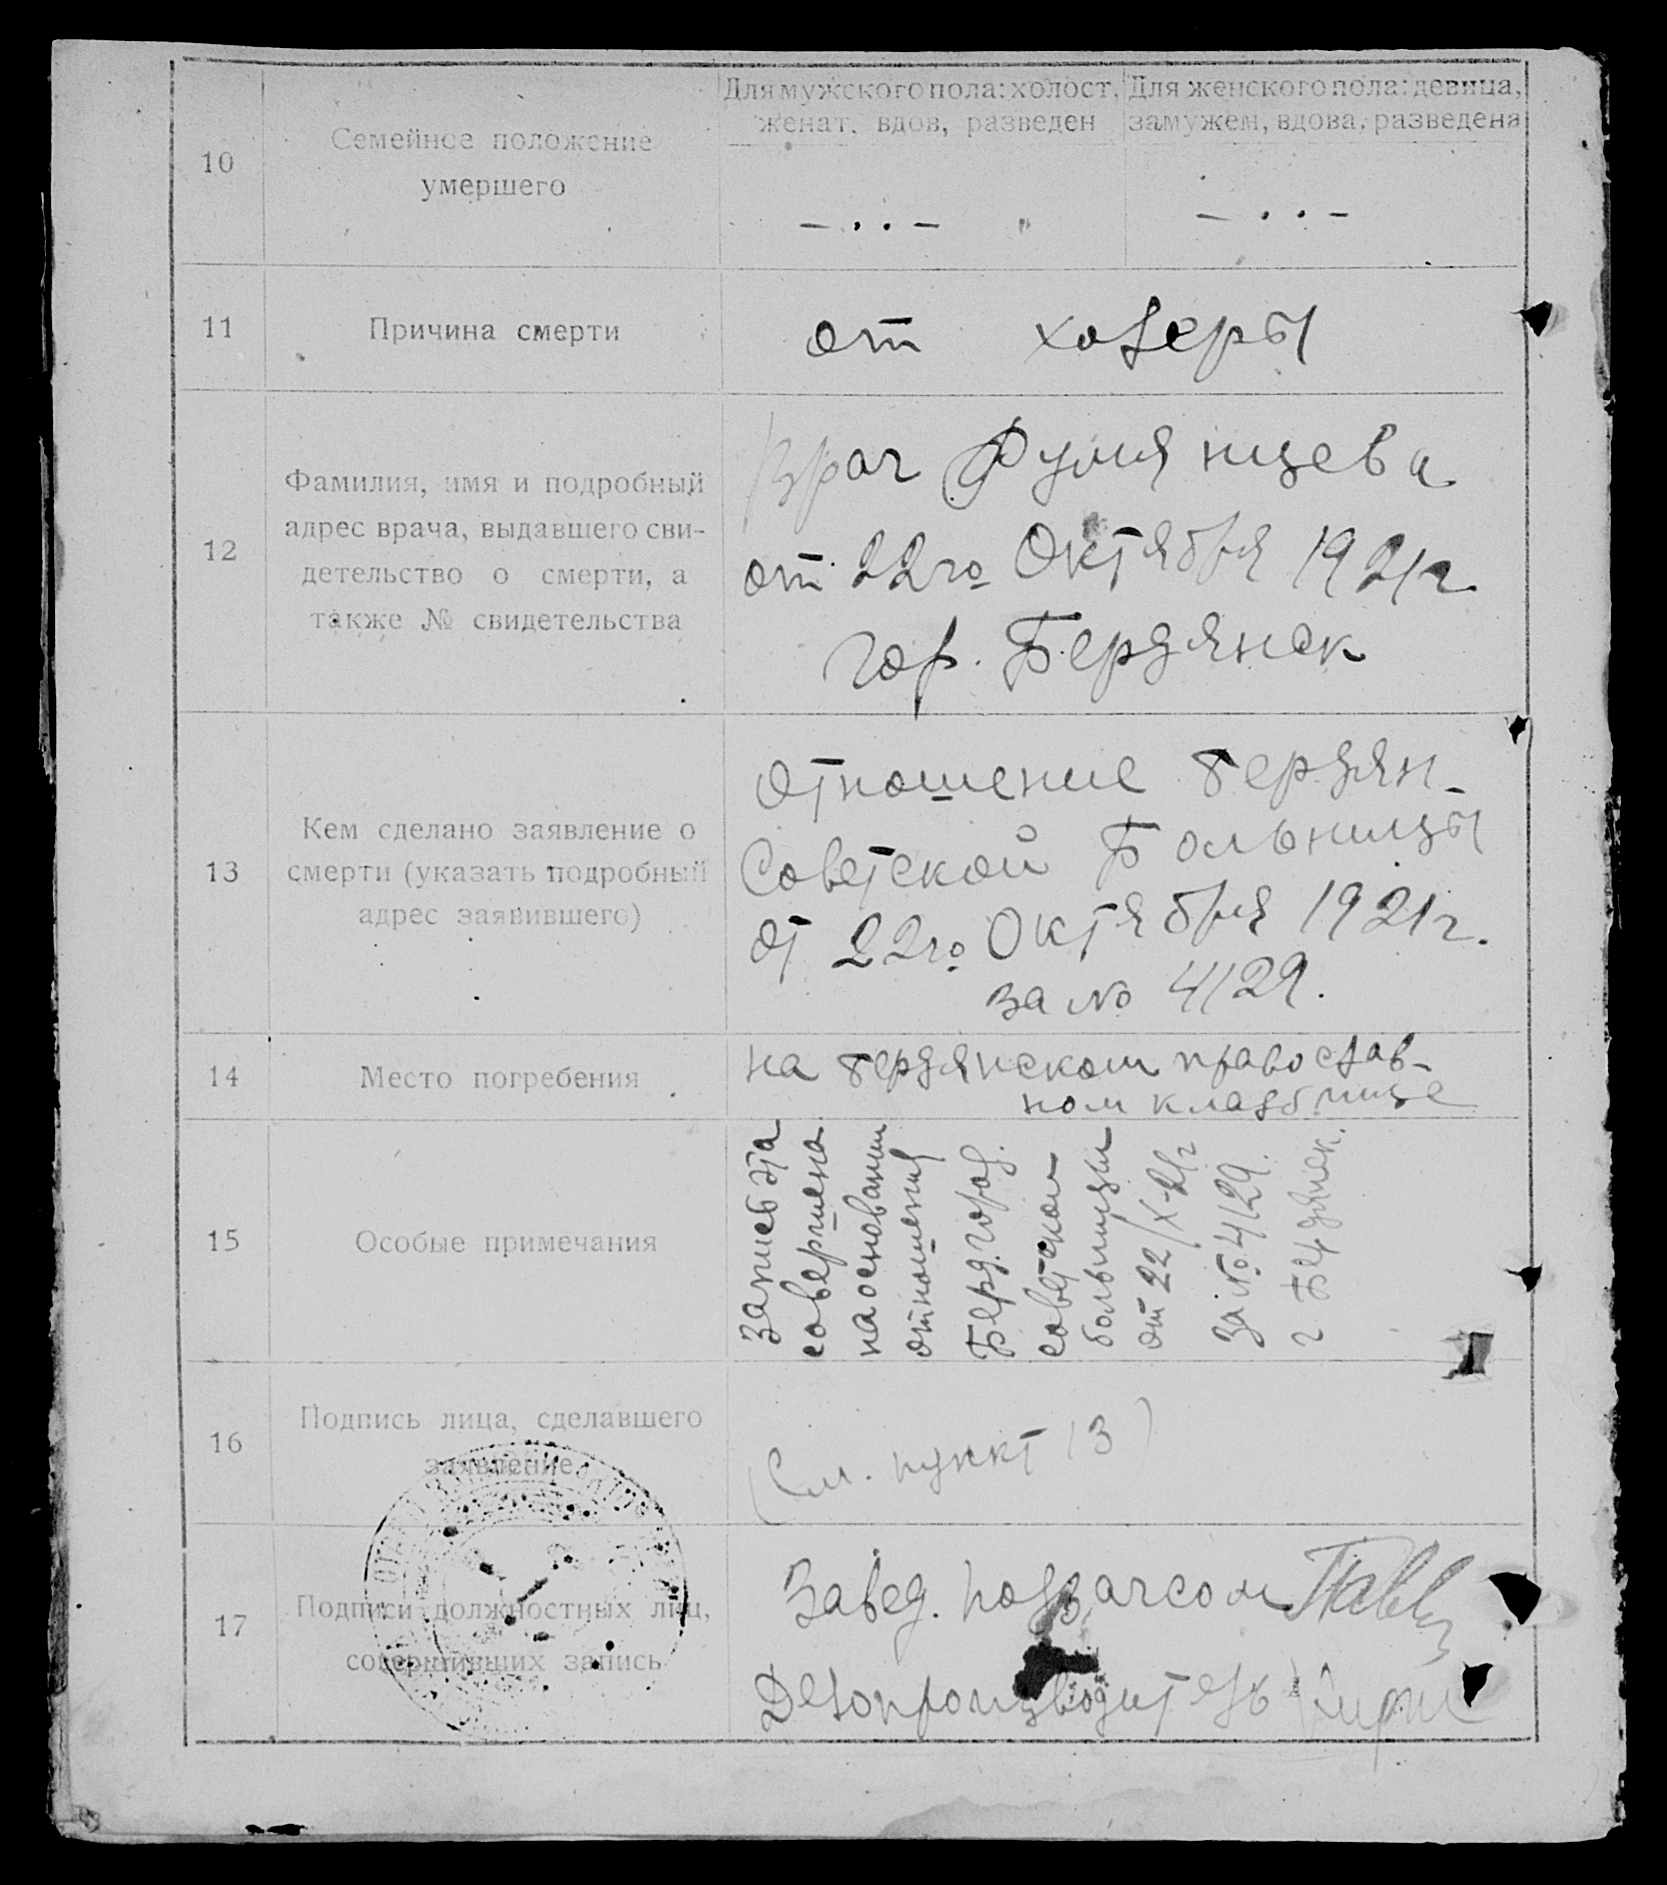 Для мужского пола: холост, женат, вдов, разведен
Для женского пола: девица, замужем, вдова, разведена
10
Семейное положение
умершего
– . . –
– . . –
11
Причина смерти
от холеры
12
Фамилия, имя и подробный
адрес врача, выдавшего сви-
детельство о смерти, а
также № свидетельства
Врач Румянцева
от 22го Октября 1921г.
гор. Бердянск
13
Кем сделано заявление о
смерти (указать подробный
адрес заявившего)
Отношение Бердян.
Советской Больницы
от 22го Октября 1921г.
за № 4129.
14
Место погребения
на Бердянском православ-
ном кладбище
15
Особые примечания
Запись эта
совершена
на основании
отношения
Берд. город.
советской
больницы
от 22/X-21г
за № 4129.
г Бердянск.
16
Подпись лица, сделавшего
заявление
(См. пункт 13)
17
Подписи должностных лиц,
совершивших запись
Завед. подзагсом
Делопроизводитель